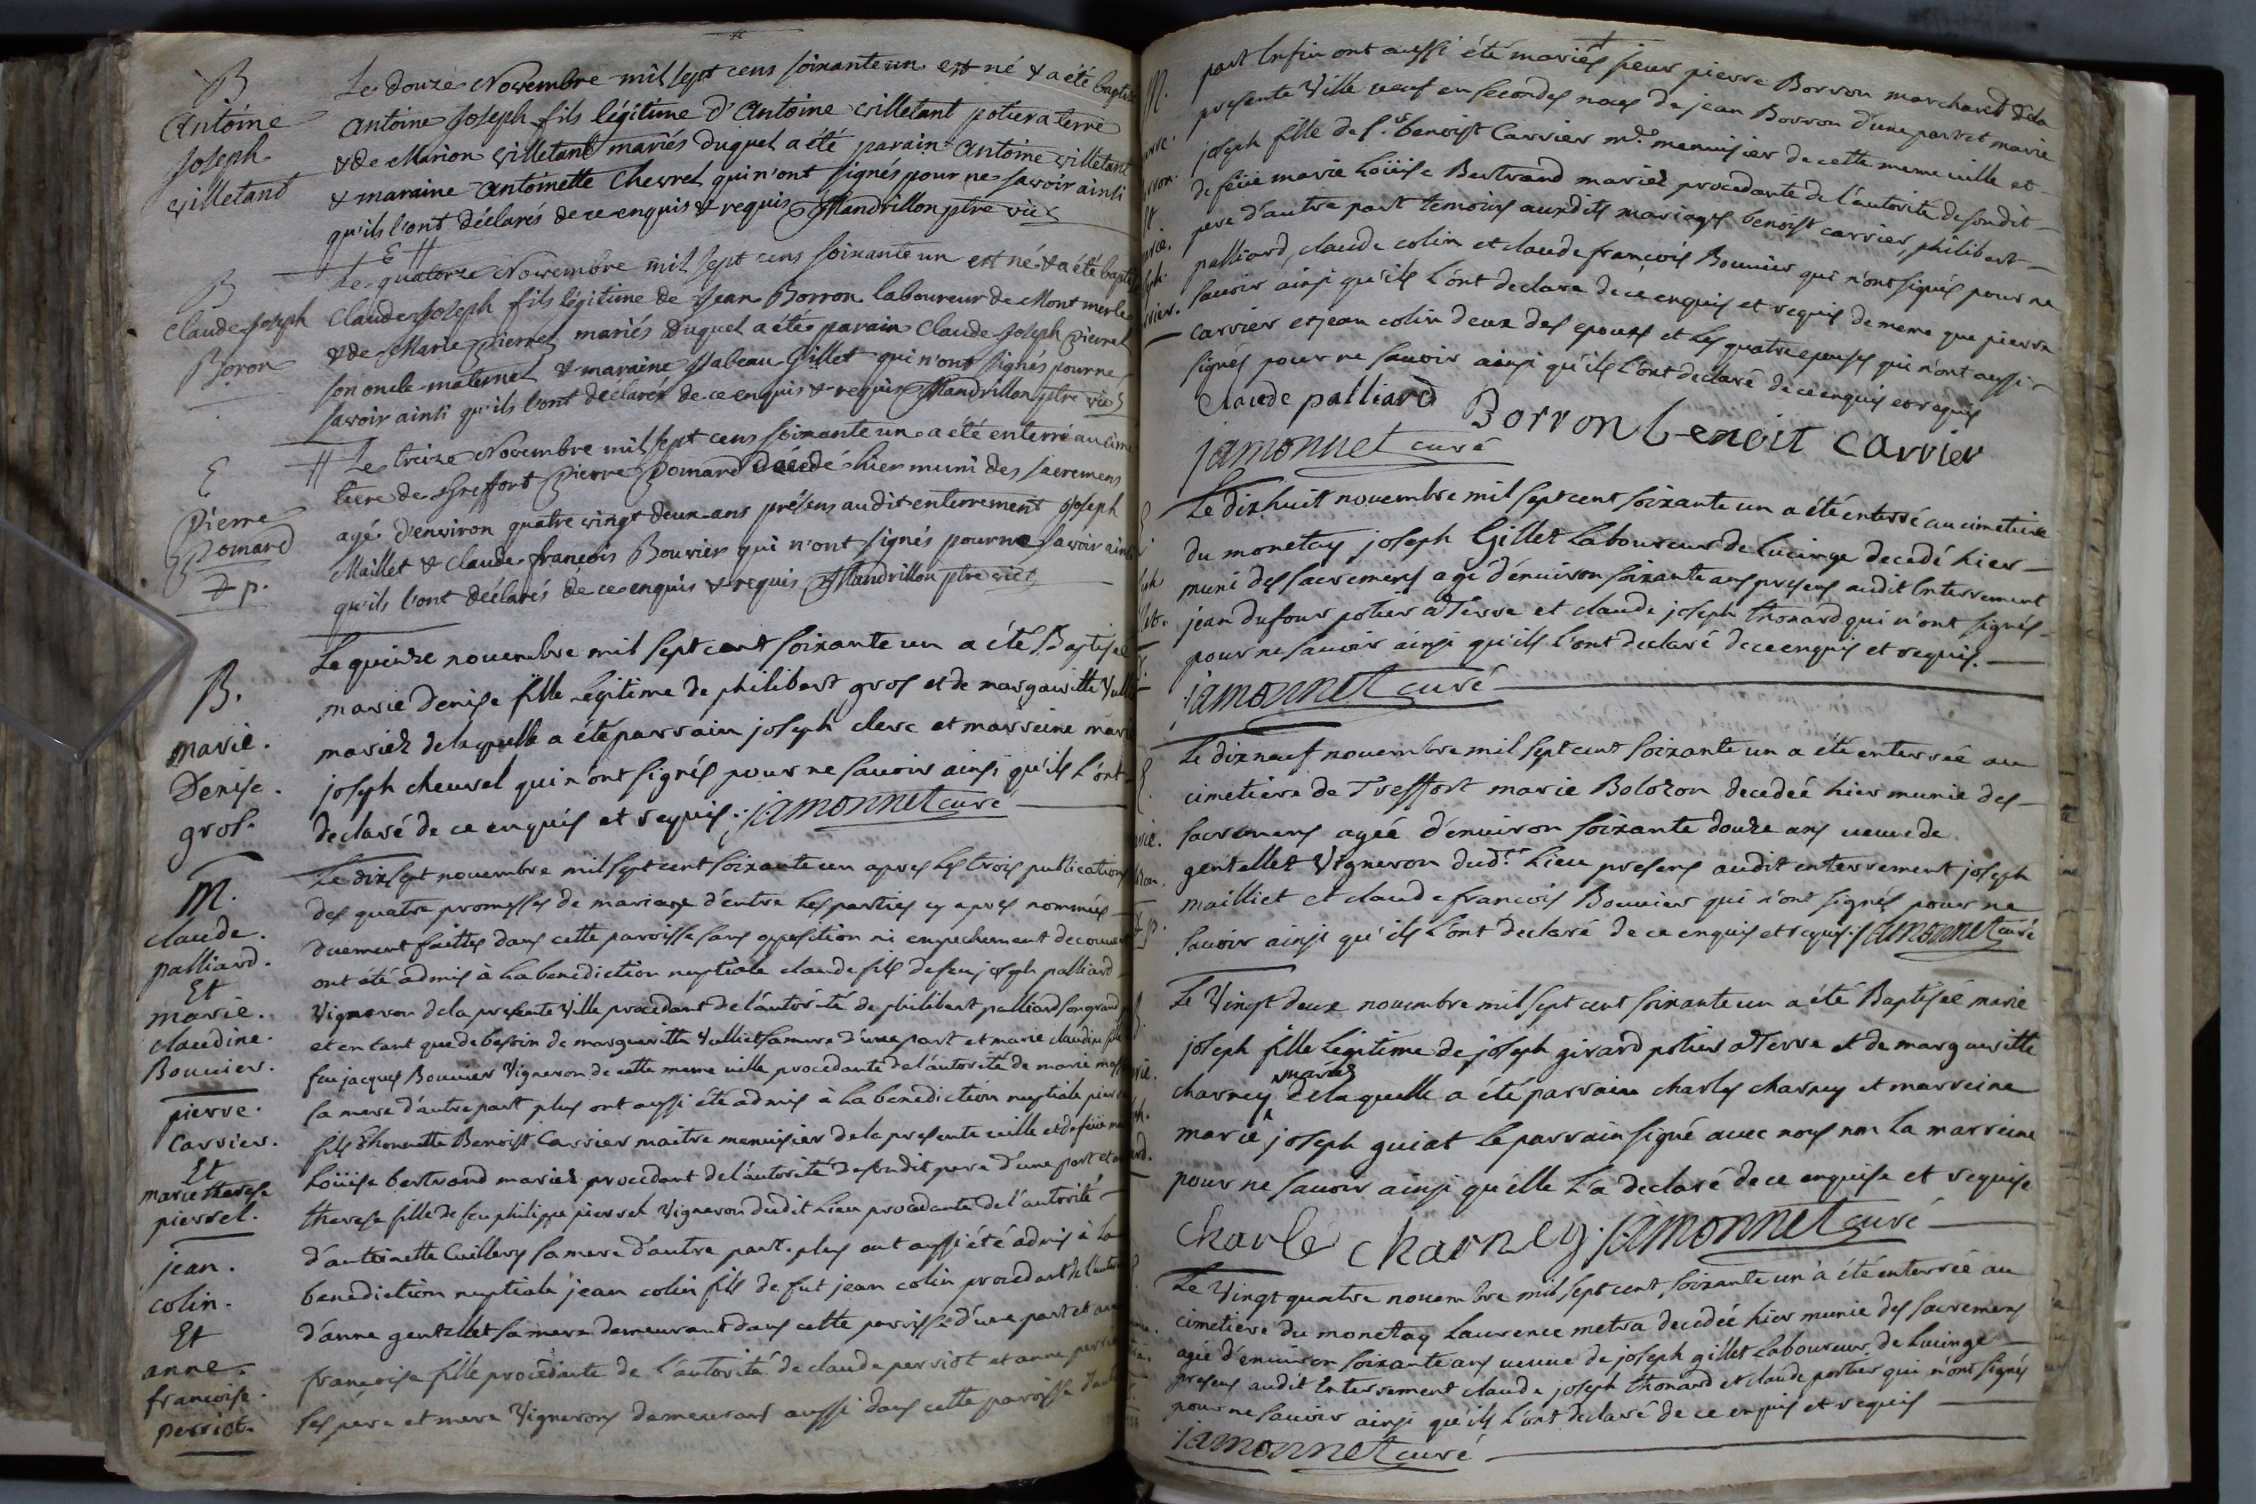 B
Antoine
Joseph
Villetant
Le douze Novembre mil sept cens soixante un est né & a été baptisé
Antoine Joseph fils légitime d'Antoine villetant potier a terre
& de Marion villetant mariés duquel a été parain Antoine villetant
& maraine Antoinette Chevrel qui n'ont signés pour ne savoir ainsi
qu'ils l'ont déclarés de ce enquis & requis Mandrillon ptre vic
B
Claude Joseph
Boron
Le quatorze Novembre mil sept cens soixante un est né & a été
Claude Joseph fils légitime de Jean Borron laboureur de Montmerle
& de Marie Pierrel mariés duquel a été parain Claude Joseph Pierrel
son oncle maternel & maraine Isabeau Gillet qui n'ont signés pour ne
savoir ainsi qu'ils l'ont déclarés de ce enquis & requis Mandrillon ptre vic
E
Pierre
Pomard
Le treize Novembre mil sept cens soixante un a été enterré au cime
tiere de Treffort Pierre Pomard décédé hier muni des sacremens
agé d'environ quatre vingt deux ans présens audit enterrement Joseph
Maillet & Claude françois Bouvier qui n'ont signés pour ne savoir ainsi
qu'ils l'ont déclarés de ce enquis & requis Mandrillon ptre vic
B.
marie.
Denise.
gros.
Le quinze novembre mil sept cent soixante un a été Baptisée
marie denise fille légitime de philibert gros et de margueritte
mariez de laquelle a été parrain joseph clerc et marreine marie
joseph cheurel qui n'ont signés pour ne sauoir ainsi qu'ils l'ont
declaré de ce enquis et requis. jamonnet curé
M.
claude.
palliard.
Et
marie.
claudine.
Bouuier.
pierre.
carrier.
Et
marie therese
pierrel.
jean.
colin.
Et
anne.
francoise.
perriot.
Le dixsept novembre mil sept cent soixante un apres les trois publications
des quatre promesses de mariage d'entre les parties cy apres nommées
duement faittes dans cette paroisse sans opposition ni empechement decouuert
ont été admis à la benediction nuptiale claude fils de feu joseph palliard
Vigneron de la presente Ville procedant de l'autorité de philibert palliard son grand
et en tant que de besoin de margueritte Vulliet sa mere d'une part et marie claudine fille
feu jacques Bouuier Vigneron de cette meme ville procedante de l'autorité de marie
sa mere d'autre part plus ont aussi été admis à la benediction nuptiale pierre
fils d'honnette Benoist Carrier maitre menuisier de la presente ville et de feüe
Loüise bertrand mariez procedant de l'autorité de sondit pere d'une part et
therese fille de feu philippe pierrel Vigneron dudit Lieu procedante de l'autorité
d'antoinette Cuillery sa mere d'autre part. plus ont aussi été admis à la
benediction nuptiale jean colin fils de fut jean colin procedant de l'autorité
d'anne gentellet sa mere demeurant dans cette paroisse d'une part et anne
francoise fille procedante de l'autorité de claude perriot et anne
ses pere et mere Vignerons demeurans aussi dans cette paroisse d'autre
part Enfin ont aussi été mariés sieur pierre Borron marchand de la
presente Ville ueuf en secondes noces de jean Borron d'une part et marie
joseph fille de Sr. benoist Carrier me. menuisier de cette meme uille et
de feüe marie Loüise Bertrand mariez procedante de l'autorité de sondit
pere d'autre part temoins auxdits mariages benoist carrier, philibert
palliard, claude colin et claude francois Bouuier qui n'ont signés pour ne
sauoir ainsi qu'ils l'ont declare de ce enquis et requis de meme que pierre
Carrier et jean colin deux des epoux et les quatre epouses qui n'ont aussi
signés pour ne sauoir ainsi qu'ils l'ont declaré de ce enquis et requis
Claude palliard Borron benoit carrier
jamonnet curé
Le dixhuit nouembre mil sept cent soixante un a été enterré au cimetiere
du monetay joseph Gillet Laboureur de Lucinge decedé hier
muni des sacremens agé d'enuiron soixante ans presens audit Enterrement
jean dufour potier à Terre et claude joseph thonard qui n'ont signés
pour ne sauoir ainsi qu'ils l'ont declaré de ce enquis et requis.
jamonnet curé
Le dixneuf nouembre mil sept cent soixante un a été enterrée au
cimetiere de Treffort marie Bolozon decedeé hier munie des
sacremens agée d'enuiron soixante douze ans ueuue de
gentellet Vigneron dudt. Lieu presens audit enterrement joseph
mailliet et claude francois Bouuier qui n'ont signés pour ne
sauoir ainsi qu'ils l'ont declaré de ce enquis et requis. jamonnet curé
Le Vingt deux nouembre mil sept cent soixante un a été Baptisée marie
joseph fille légitime de joseph girard potier à Terre et de margueritte
charney mariez de laquelle a été parrain charles charney et marreine
marie joseph guiat le parrain signé auec nous non la marreine
pour ne sauoir ainsi qu'elle l'a declaré de ce enquise et requise
Charle charney jamonnet curé
Le Vingt quatre nouembre mil sept cent soixante un a été enterrée au
cimetiere du monetay Laurence metra decedée hier munie des sacremens
agée d'enuiron soixante ans ueuue de joseph gillet Laboureur de Lucinge
presens audit Enterrement claude joseph thonard et claude portier qui n'ont signés
pour ne sauoir ainsi qu'ils l'ont declaré de ce enquis et requis
jamonnet curé